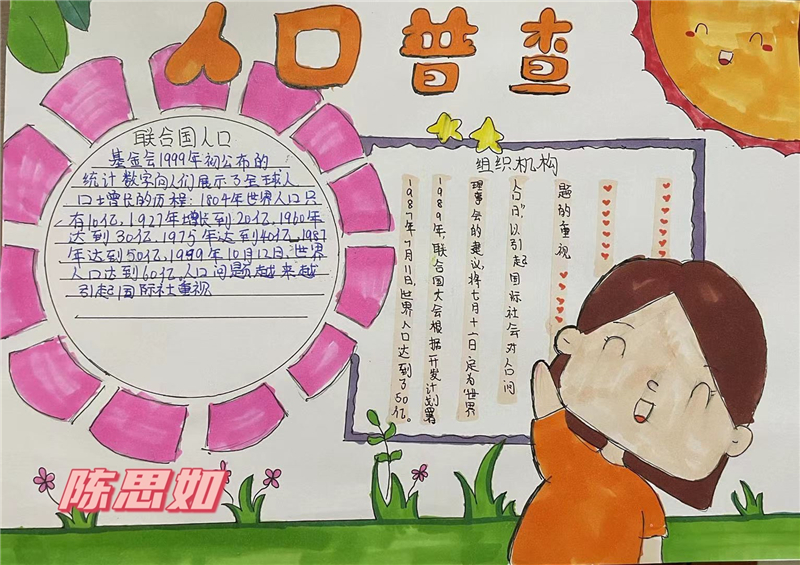 人口普查
联合国人口
基金会1999年初公布的
统计数字向人们展示了全球人
口土增长的历程：1804年世界人口只
有10亿，1927年增长到20亿，1960年
达到30亿，1975年达到40亿，1987
年达到50亿，1999年10月12日，世界
人口达到60亿，人口问题越来越
引起国际社重视
组织机构
1987年7月11日，世界人口达到了50亿。
1989年，联合国大会根据开发计划署
理事会的建议，将七月十一日定为“世界
人口日”以引起国际社会对人口问
题的重视
陈思如